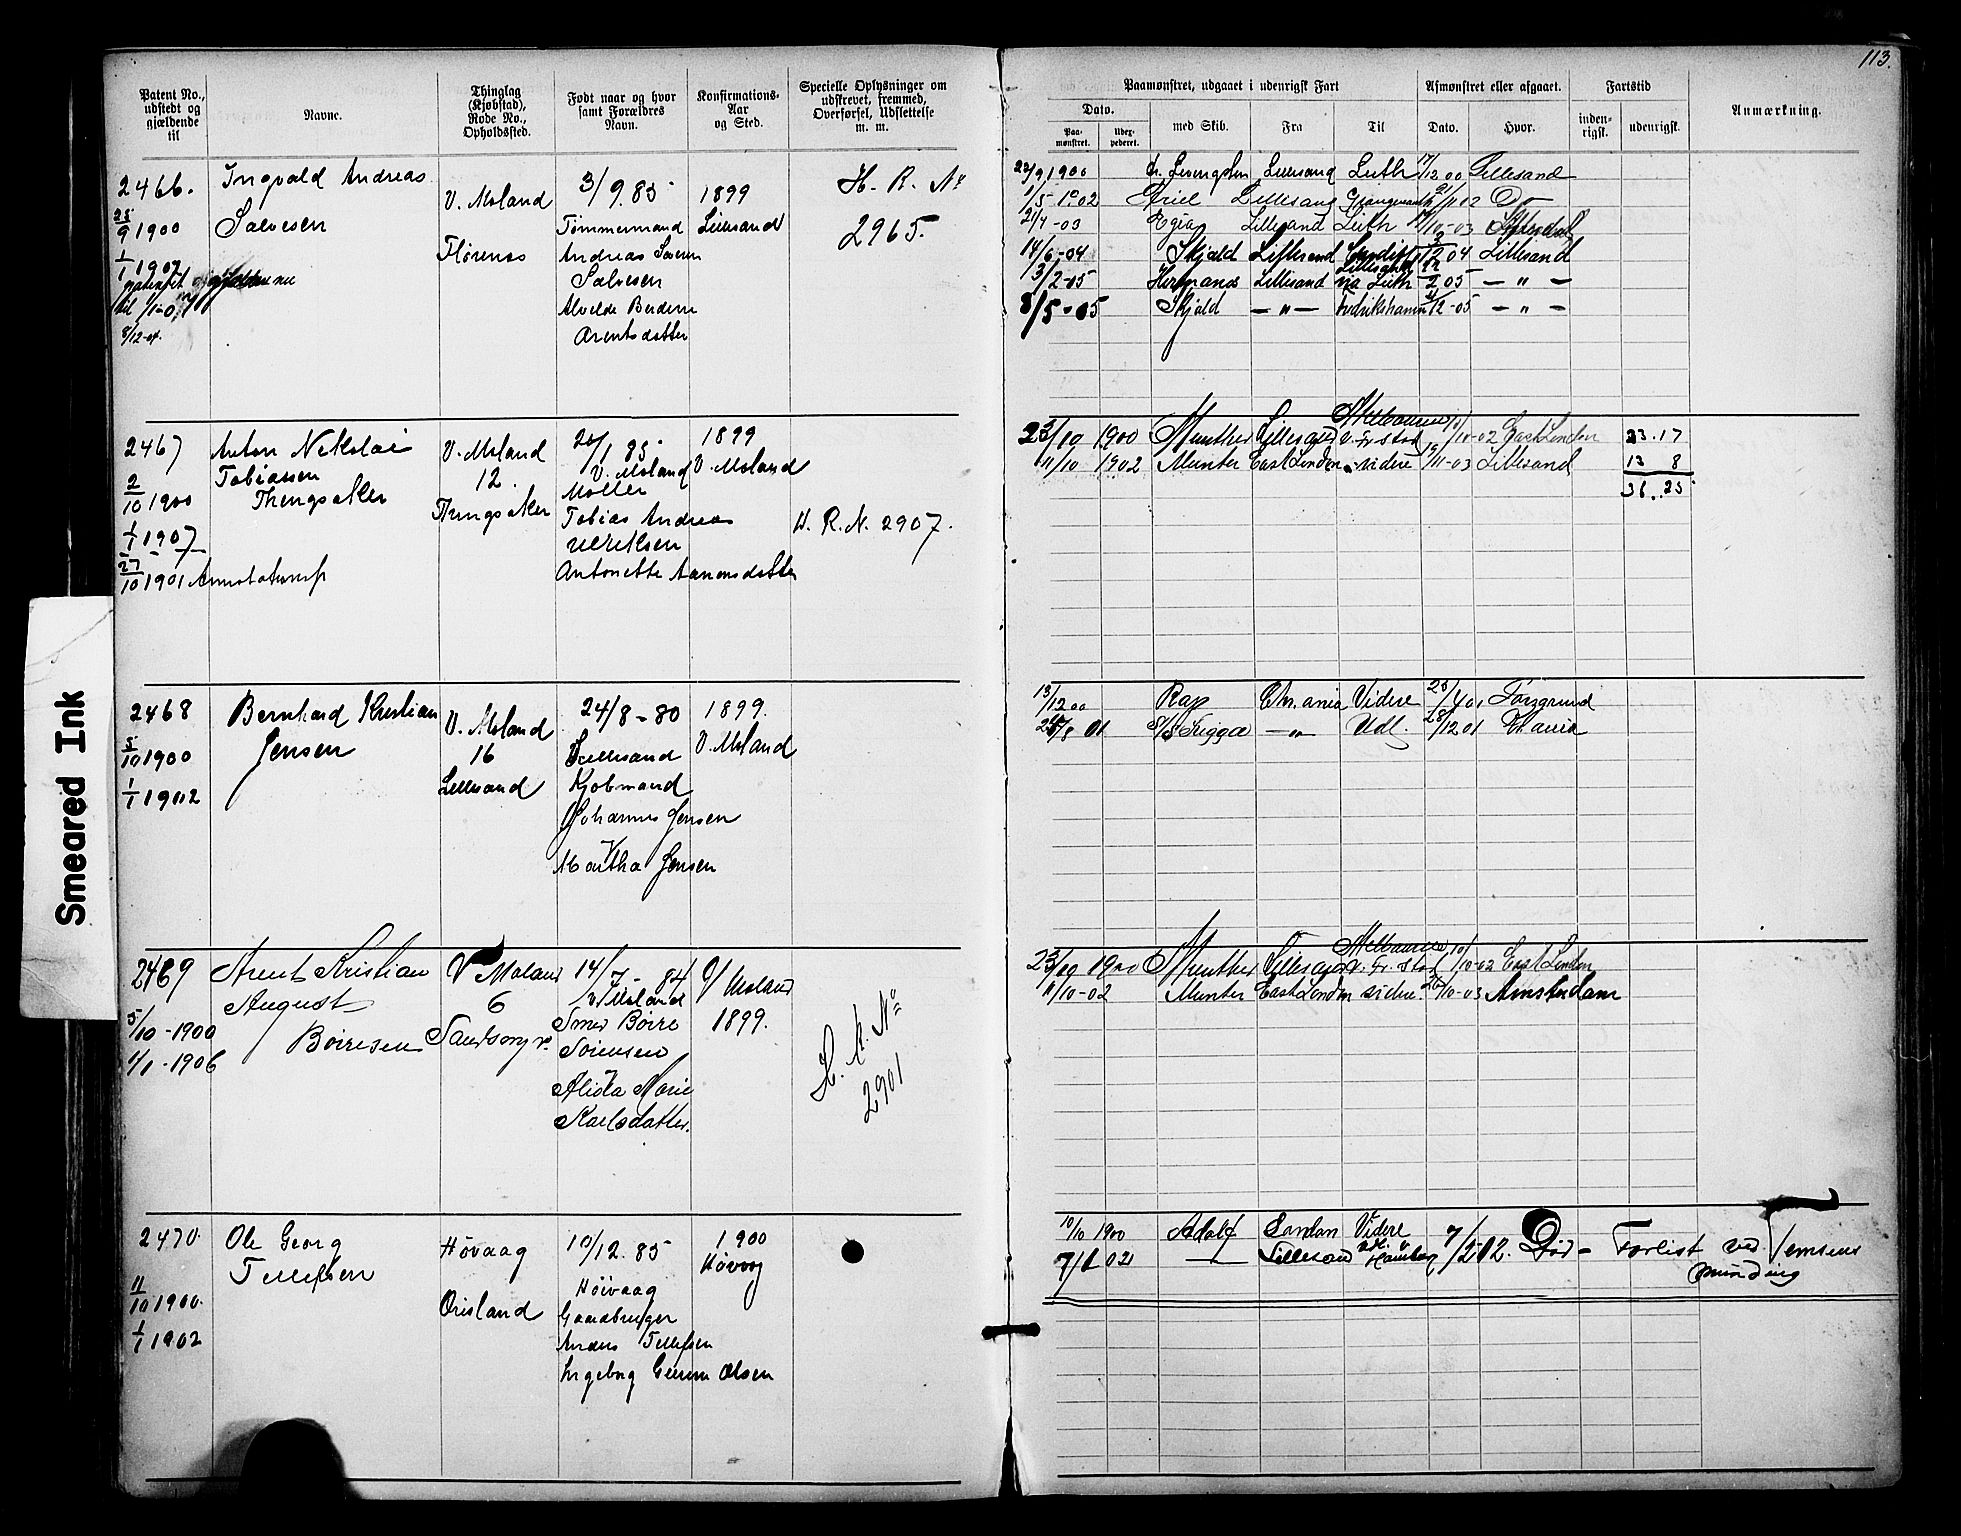 113.
Patent No., udstedt og gjældende til
Navne.
Thinglag (Kjøbstad), Rode No., Opholdssted.
Født naar og hvor samt Forældres Navn.
Konfirmations-Aar og Sted.
Specielle Oplysninger om udskrevet, fremmed, Overførsel, Udslettelse m. m.
Paamønstret, udgaaet i udenrigsk Fart
Afmønstret eller afgaaet.
Fartstid
Anmærkning.
Dato.
Paa-mønstret.
med Skib.
Fra
Til
Dato.
Hvor.
inden-rigsk.
udenrigsk.
2466.
25/9 1900
1/1 1907
til 1/1-07
8/12-04.
Ingvald Andreas
Salvesen
V. Moland
Florenes
3/9.85
Tømmermand
Andreas Søren
Salvesen
Arentsdatter
1899
Lillesand
H. R. No
2965.
23/9 1900 Lillesand Leith 17/12 00 Lillesand
1/5-1902 Ariel Lillesand 21/11 02 Do
21/4-03 Egia Lillesand Leith /10-03
14/6-04 Skjold Lillesand 04 Lillesand
13/2-05 Hermanos Lillesand Lillesand via Leith 05 — " —
8/5-05 Skjold — " — Fredrikshamn /12-05 — " —
2467
2/10 1900
1/1 1907
27/10 1901
Anton Nikolai
Tobiassen
Thingsaker
V. Moland
12.
Thingsaker
20/1 85
V. Moland
Møller
Tobias Andreas
Ulriksen
Antonette Aanonsdatter
1899
V. Moland
H. R. N. 2907.
23/10 1900 Munther Lillesand Melbourne v. Fr.stad /10-02 East London 23.17
11/10 1902 Munter East London videre /11-03 Lillesand 13 8
36.25
2468
5/10 1900
1/1 1902
Bernhard Kristian
Jensen
V. Moland
16
Lillesand
24/8-80
Lillesand
Kjøbmand
Johannes Jensen
Martha Jensen
1899.
V. Moland
13/12 00 Rap Chr.ania Videre 25/4 01 Porsgrund
/8 01 S/S Frigga — " — Udl. 28/12 01 Kr.ania
2469
5/10-1900
1/1-1906
Arent Kristian
August
Børresen
V Moland
6
14/7-84
V Moland
Smed Børre
Sørensen
Alida Marie
Karlsdatter.
V Moland
1899.
H. R. No
2901
23/10 1900 Munther Lillesand Melbourne v. Fr.stad /10-02 East London
11/10-02 Munter East London videre. /10-03 Amsterdam
2470.
11/10 1900.
1/1 1902
Ole Georg
Tellefsen
Høvaag
Ørisland
10/12.85
Høivaag
Gaardbruger
Anders Tellefsen
Ingeborg Olsen
1900
Høvaag
10/10 1900 Adolf London Videre
7/1 02 — " — Lillesand 7/2 02. Død - Forlist ved Temsens
munding
Smeared Ink